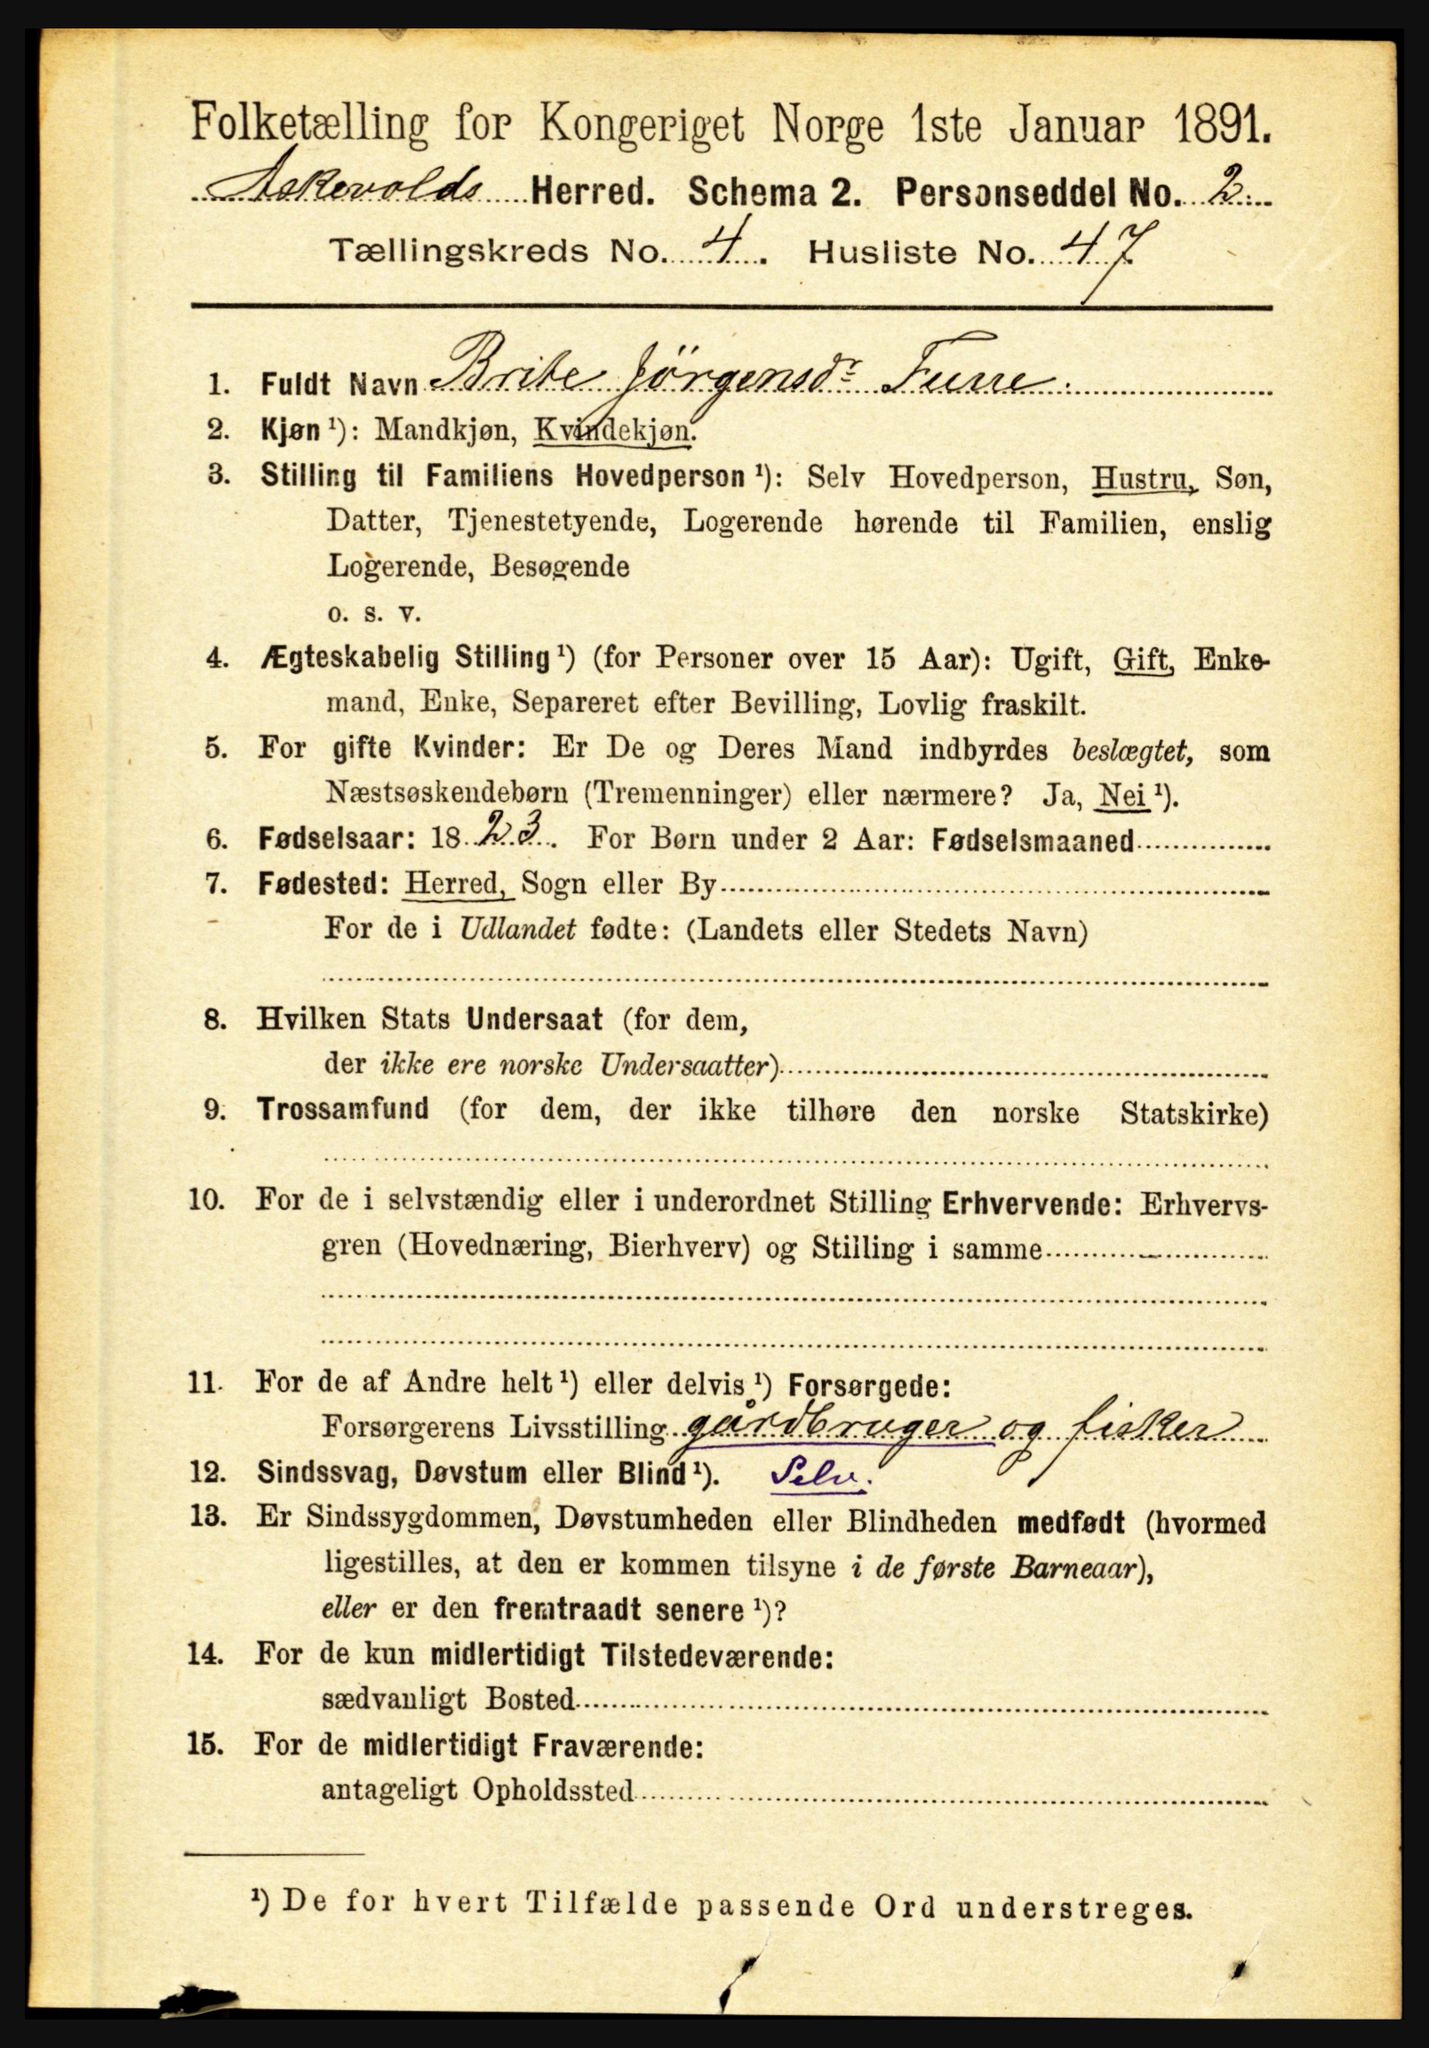 Folketælling for Kongeriget Norge 1ste Januar 1891.
Askevolds Herred. Schema 2. Personseddel No. 2.
Tællingskreds No. 4. Husliste No. 47
1. Fuldt Navn Brite Jörgensdr Furre.
2. Kjøn ¹): Mandkjøn, Kvindekjøn.
3. Stilling til Familiens Hovedperson ¹): Selv Hovedperson, Hustru, Søn,
Datter, Tjenestetyende, Logerende hørende til Familien, enslig
Logerende, Besøgende
o. s. v.
4. Ægteskabelig Stilling ¹) (for Personer over 15 Aar): Ugift, Gift, Enke-
mand, Enke, Separeret efter Bevilling, Lovlig fraskilt.
5. For gifte Kvinder: Er De og Deres Mand indbyrdes beslægtet, som
Næstsøskendebørn (Tremenninger) eller nærmere? Ja, Nei ¹).
6. Fødselsaar: 1823. For Børn under 2 Aar: Fødselsmaaned
7. Fødested: Herred, Sogn eller By
For de i Udlandet fødte: (Landets eller Stedets Navn)
8. Hvilken Stats Undersaat (for dem,
der ikke ere norske Undersaatter)
9. Trossamfund (for dem, der ikke tilhøre den norske Statskirke)
10. For de i selvstændig eller i underordnet Stilling Erhvervende: Erhvervs-
gren (Hovednæring, Bierhverv) og Stilling i samme
11. For de af Andre helt ¹) eller delvis ¹) Forsørgede:
Forsørgerens Livsstilling gårdbruger og fisker
12. Sindssvag, Døvstum eller Blind ¹). Selv.
13. Er Sindssygdommen, Døvstumheden eller Blindheden medfødt (hvormed
ligestilles, at den er kommen tilsyne i de første Barneaar),
eller er den fremtraadt senere ¹)?
14. For de kun midlertidigt Tilstedeværende:
sædvanligt Bosted
15. For de midlertidigt Fraværende:
antageligt Opholdssted
¹) De for hvert Tilfælde passende Ord understreges.